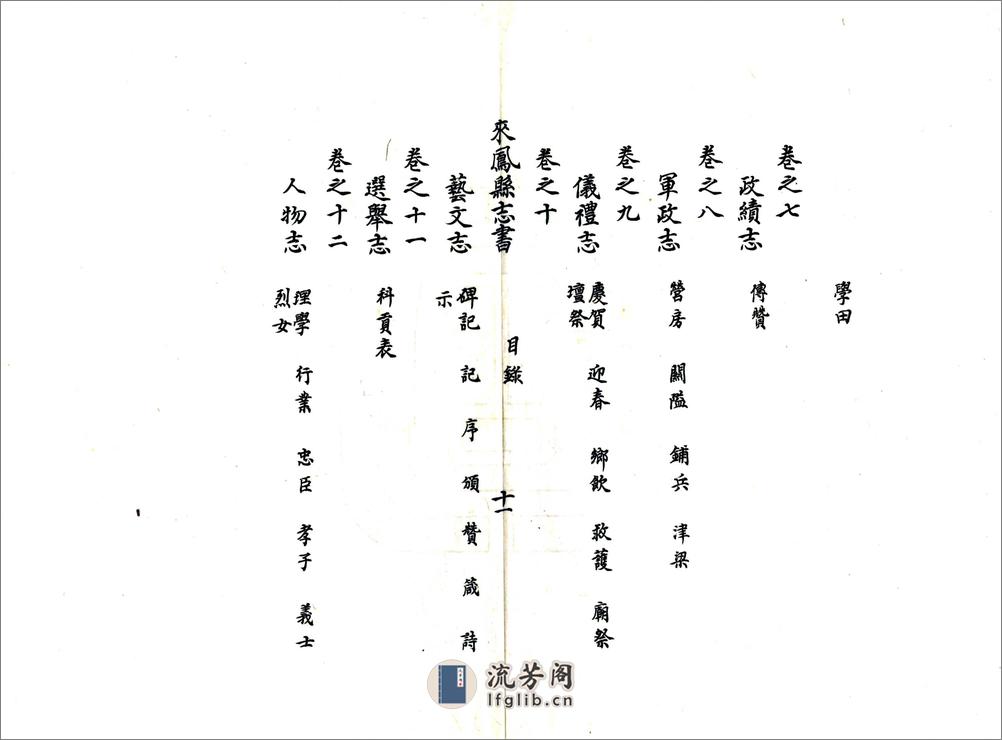 學田
卷之七
政績志 傳贊
卷之八
軍政志 營房 關隘 鋪兵 津梁
卷之九
儀禮志 慶賀 迎春 鄉飲 救護 廟祭
壇祭
卷之十
來鳳縣志書 目錄 十一
藝文志 碑記 記 序 頌 贊 箴 詩
示
卷之十一
選舉志 科貢表
卷之十二
人物志 理學 行業 忠臣 孝子 義士
烈女
流芳阁
lfglib.cn